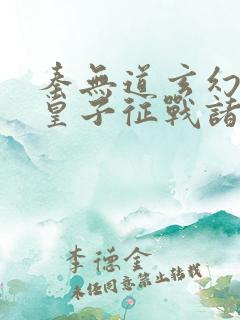 秦無道玄幻
皇子征戰諸
李德金
未经同意禁止转载